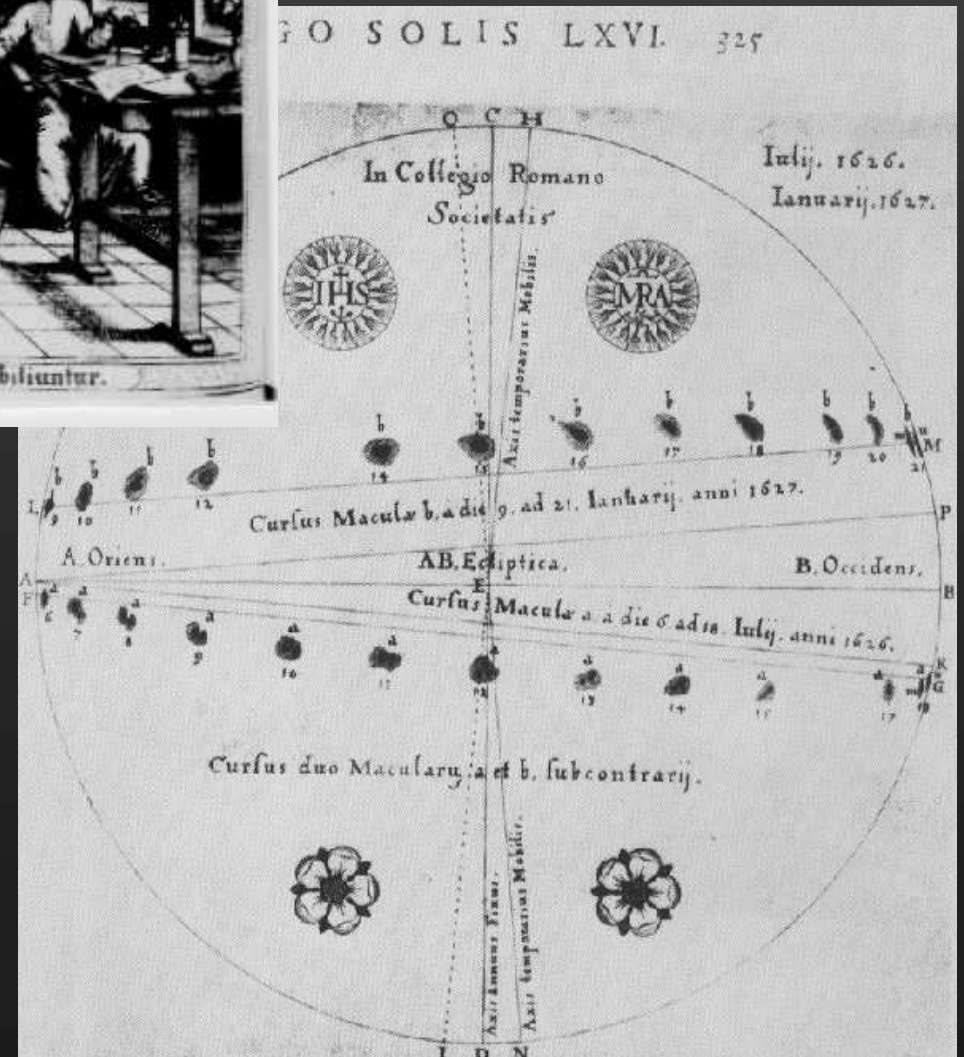 GO SOLIS LXVI. 325
O C H
In Collegio Romano
Societatis
Iulij. 1626.
Ianuarij. 1627.
IHS
MRA
Axis temporarius Mobilis.
biliuntur.
b b b b b b b b b b b b
L 9 10 11 12 14 15 16 17 18 19 20 m n 21 M
Cursus Maculæ b. a die 9. ad 21. Ianuarij. anni 1627.
P
A. Oriens.
AB. Ecliptica.
B. Occidens.
A E B
F
Cursus Maculæ a a die 6 ad 18. Iulij. anni 1626.
a a a a a a a a a a a a
6 7 8 9 10 11 12 13 14 15 17 m 18
K
G
Cursus duo Macularu a et b. subcontrarij.
Axis annuus Fixus.
Axis temporarius Mobilis.
I D N